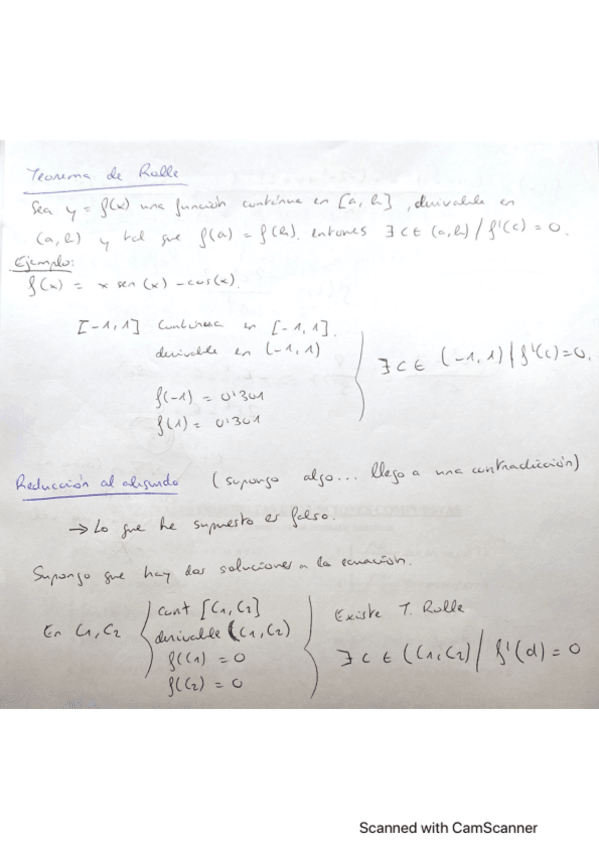 Teorema de Rolle
Sea y = f(x) una función continua en [a, b], derivable en
(a, b) y tal que f(a) = f(b). entonces ∃ c ∈ (a, b) / f'(c) = 0.
Ejemplo:
f(x) = x sen(x) - cos(x).
[-1, 1] continua en [-1, 1].
derivable en (-1, 1)
f(-1) = 0'301
f(1) = 0'301
∃ c ∈ (-1, 1) / f'(c) = 0.
Reducción al absurdo (supongo algo... llego a una contradicción)
→ Lo que he supuesto es falso.
Supongo que hay dos soluciones a la ecuación.
En C1, C2
cont [C1, C2]
derivable (C1, C2)
f(C1) = 0
f(C2) = 0
Existe T. Rolle
∃ c ∈ (C1, C2) / f'(d) = 0
Scanned with CamScanner